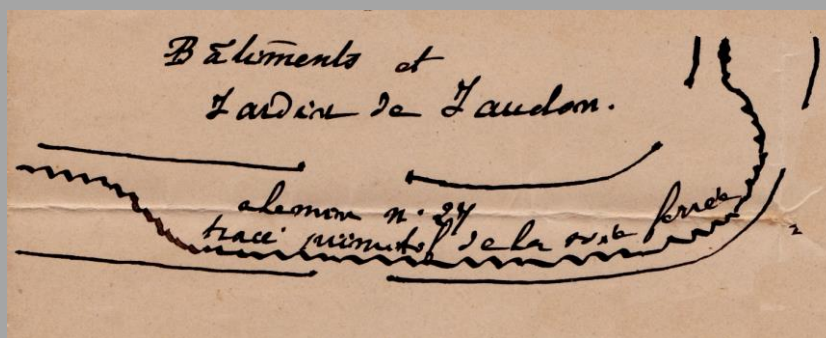 Bâtiments et
Jardin de Jaudon.
chemin n. 27
tracé primitif de la voie ferrée